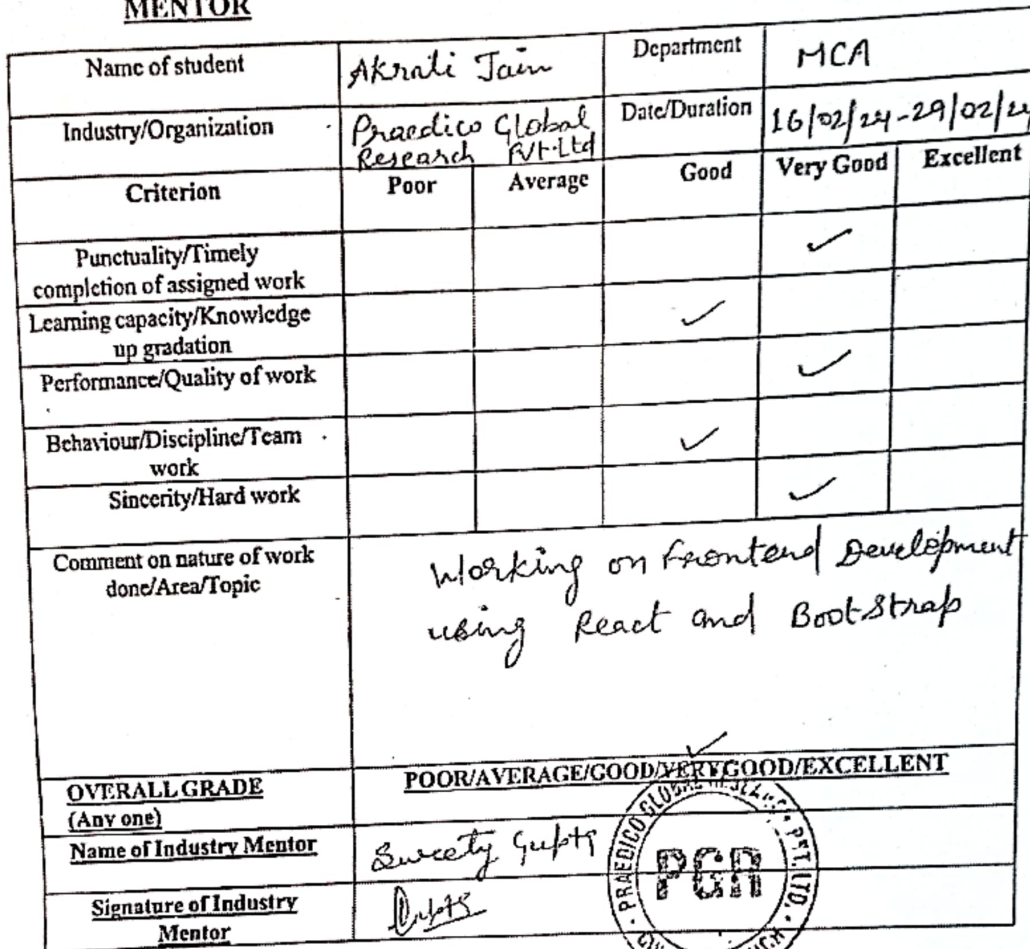 MENTOR
Name of student Akrati Jain Department MCA
Industry/Organization Praedico Global Research Pvt.Ltd Date/Duration 16/02/24-29/02/2
Criterion Poor Average Good Very Good Excellent
Punctuality/Timely
completion of assigned work ✓
Learning capacity/Knowledge
up gradation ✓
Performance/Quality of work ✓
Behaviour/Discipline/Team
work ✓
Sincerity/Hard work ✓
Comment on nature of work
done/Area/Topic
Working on Frontend Development
using React and BootStrap
✓
OVERALL GRADE POOR/AVERAGE/GOOD/VERYGOOD/EXCELLENT
(Any one)
Name of Industry Mentor Sweety Gupta
Signature of Industry
Mentor Gupta
PRAEDICO GLOBAL RESEARCH PVT. LTD.
PGR